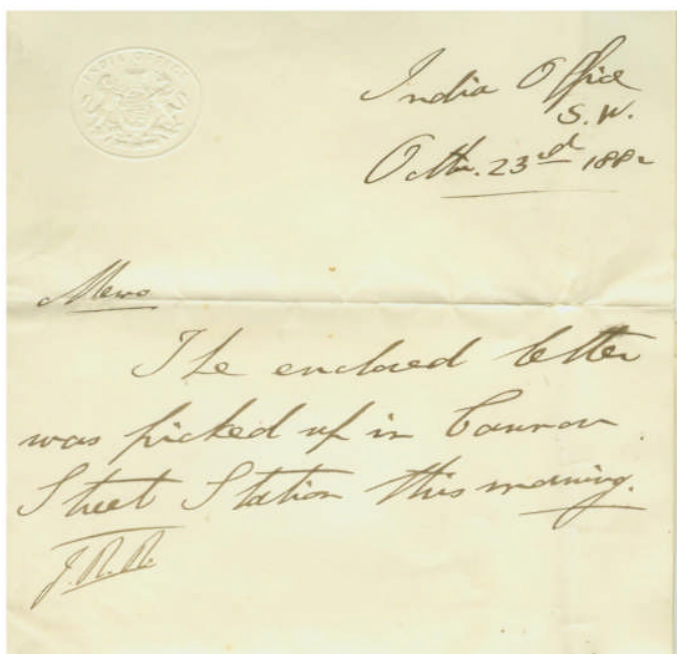 INDIA OFFICE
India Office
S.W.
Octbr. 23rd 1882
Memo
The enclosed letter
was picked up in Cannon
Street Station this morning.
J.R.R.